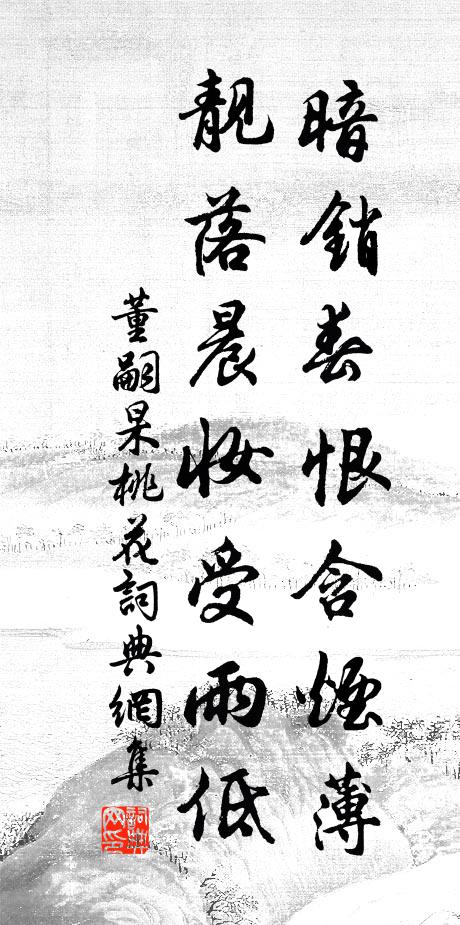 暗銷春恨含煙薄
靚落晨妝受雨低
董嗣杲桃花詞典網集
詞典網印